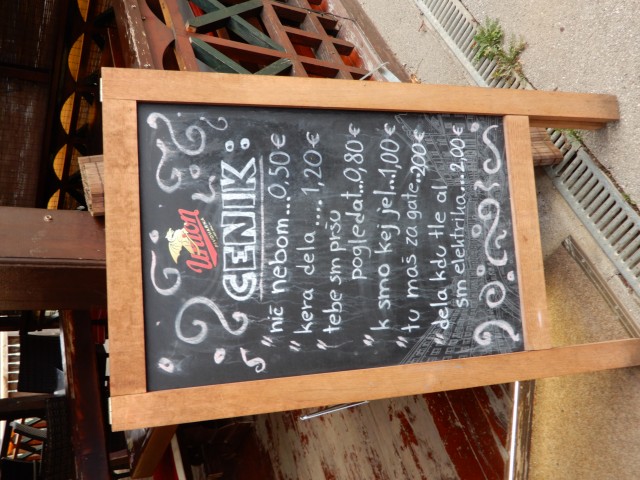 Union
CENIK:
"nič nebom....0,50€
"kera dela .... 1,20€
"tebe sm pršu
pogledat..0,80€
"k smo kej jel...1,00€
"tu maš za gate..2,00€
"dela kdu tle al
sm elektrika....2,00€